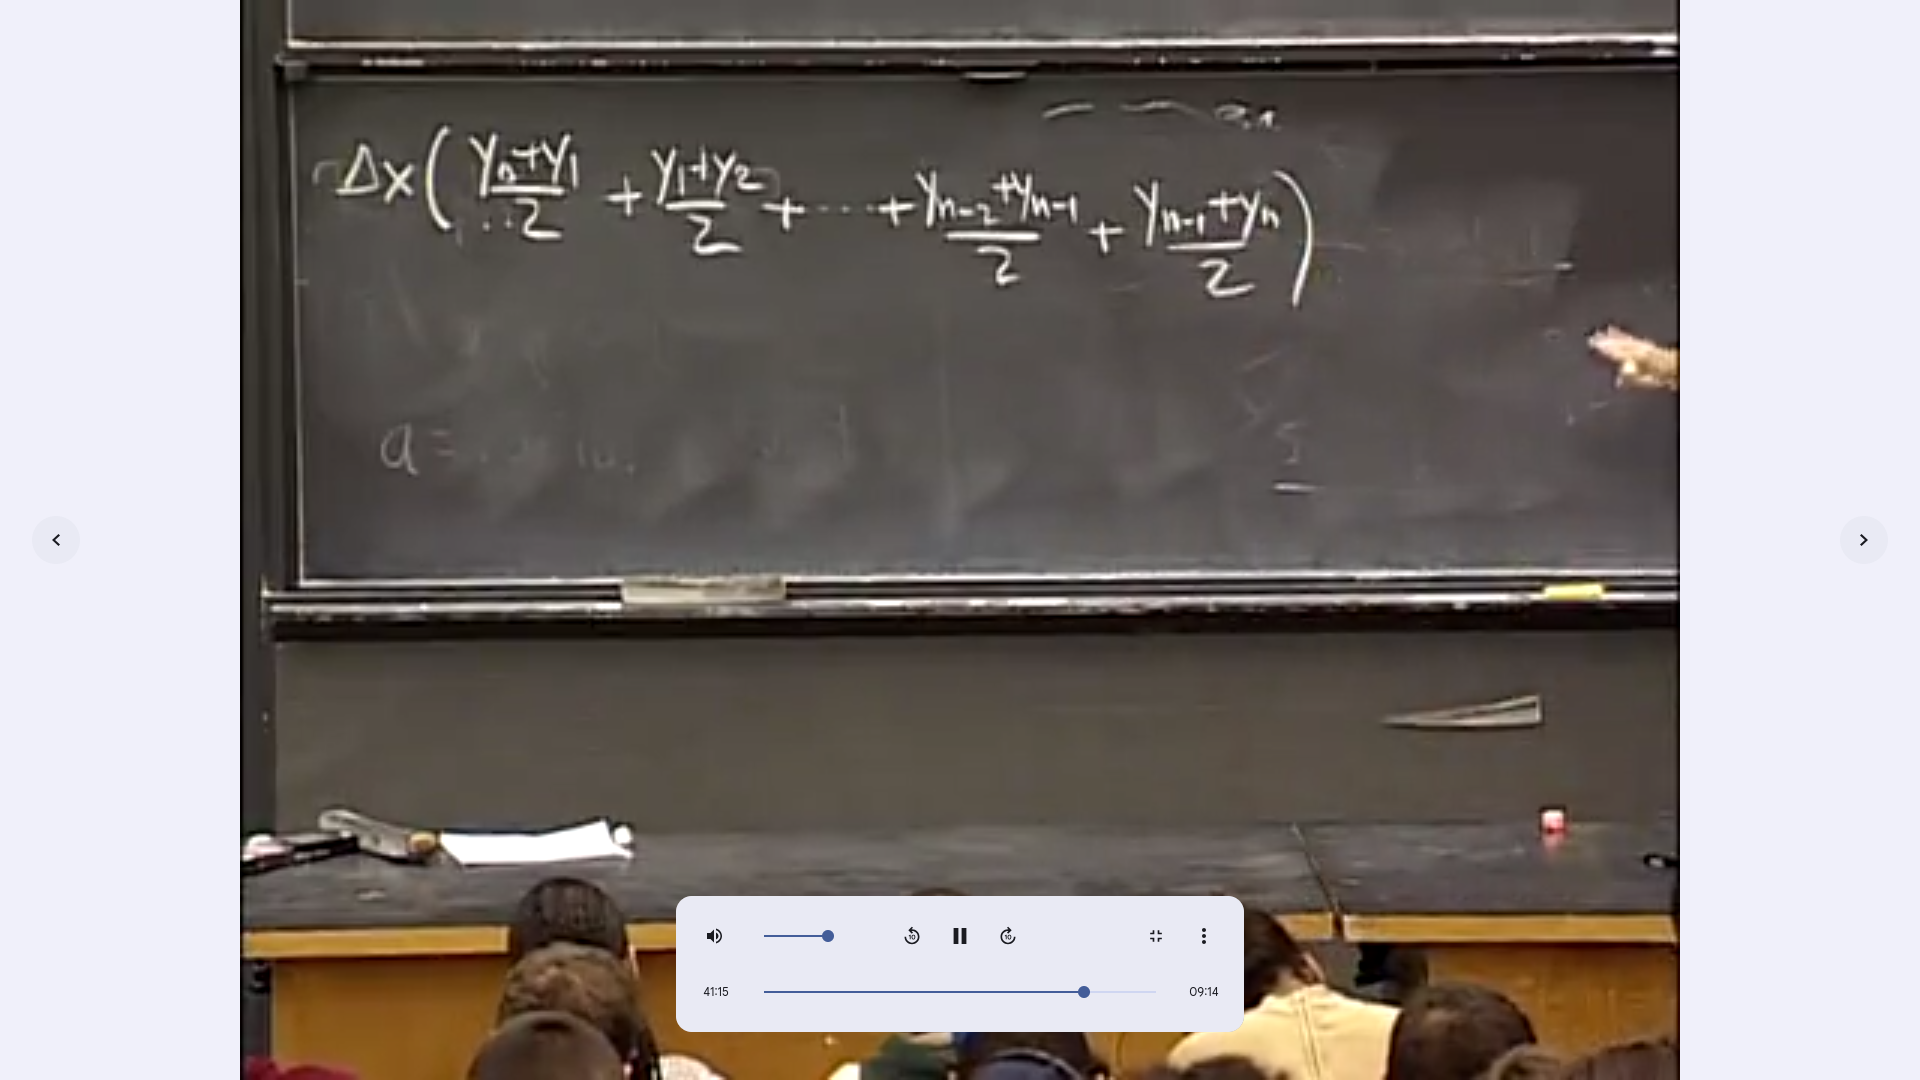 Δx( (y₀+y₁)/2 + (y₁+y₂)/2 + ··· + (yₙ₋₂+yₙ₋₁)/2 + (yₙ₋₁+yₙ)/2 )
a =
10
10
41:15
09:14